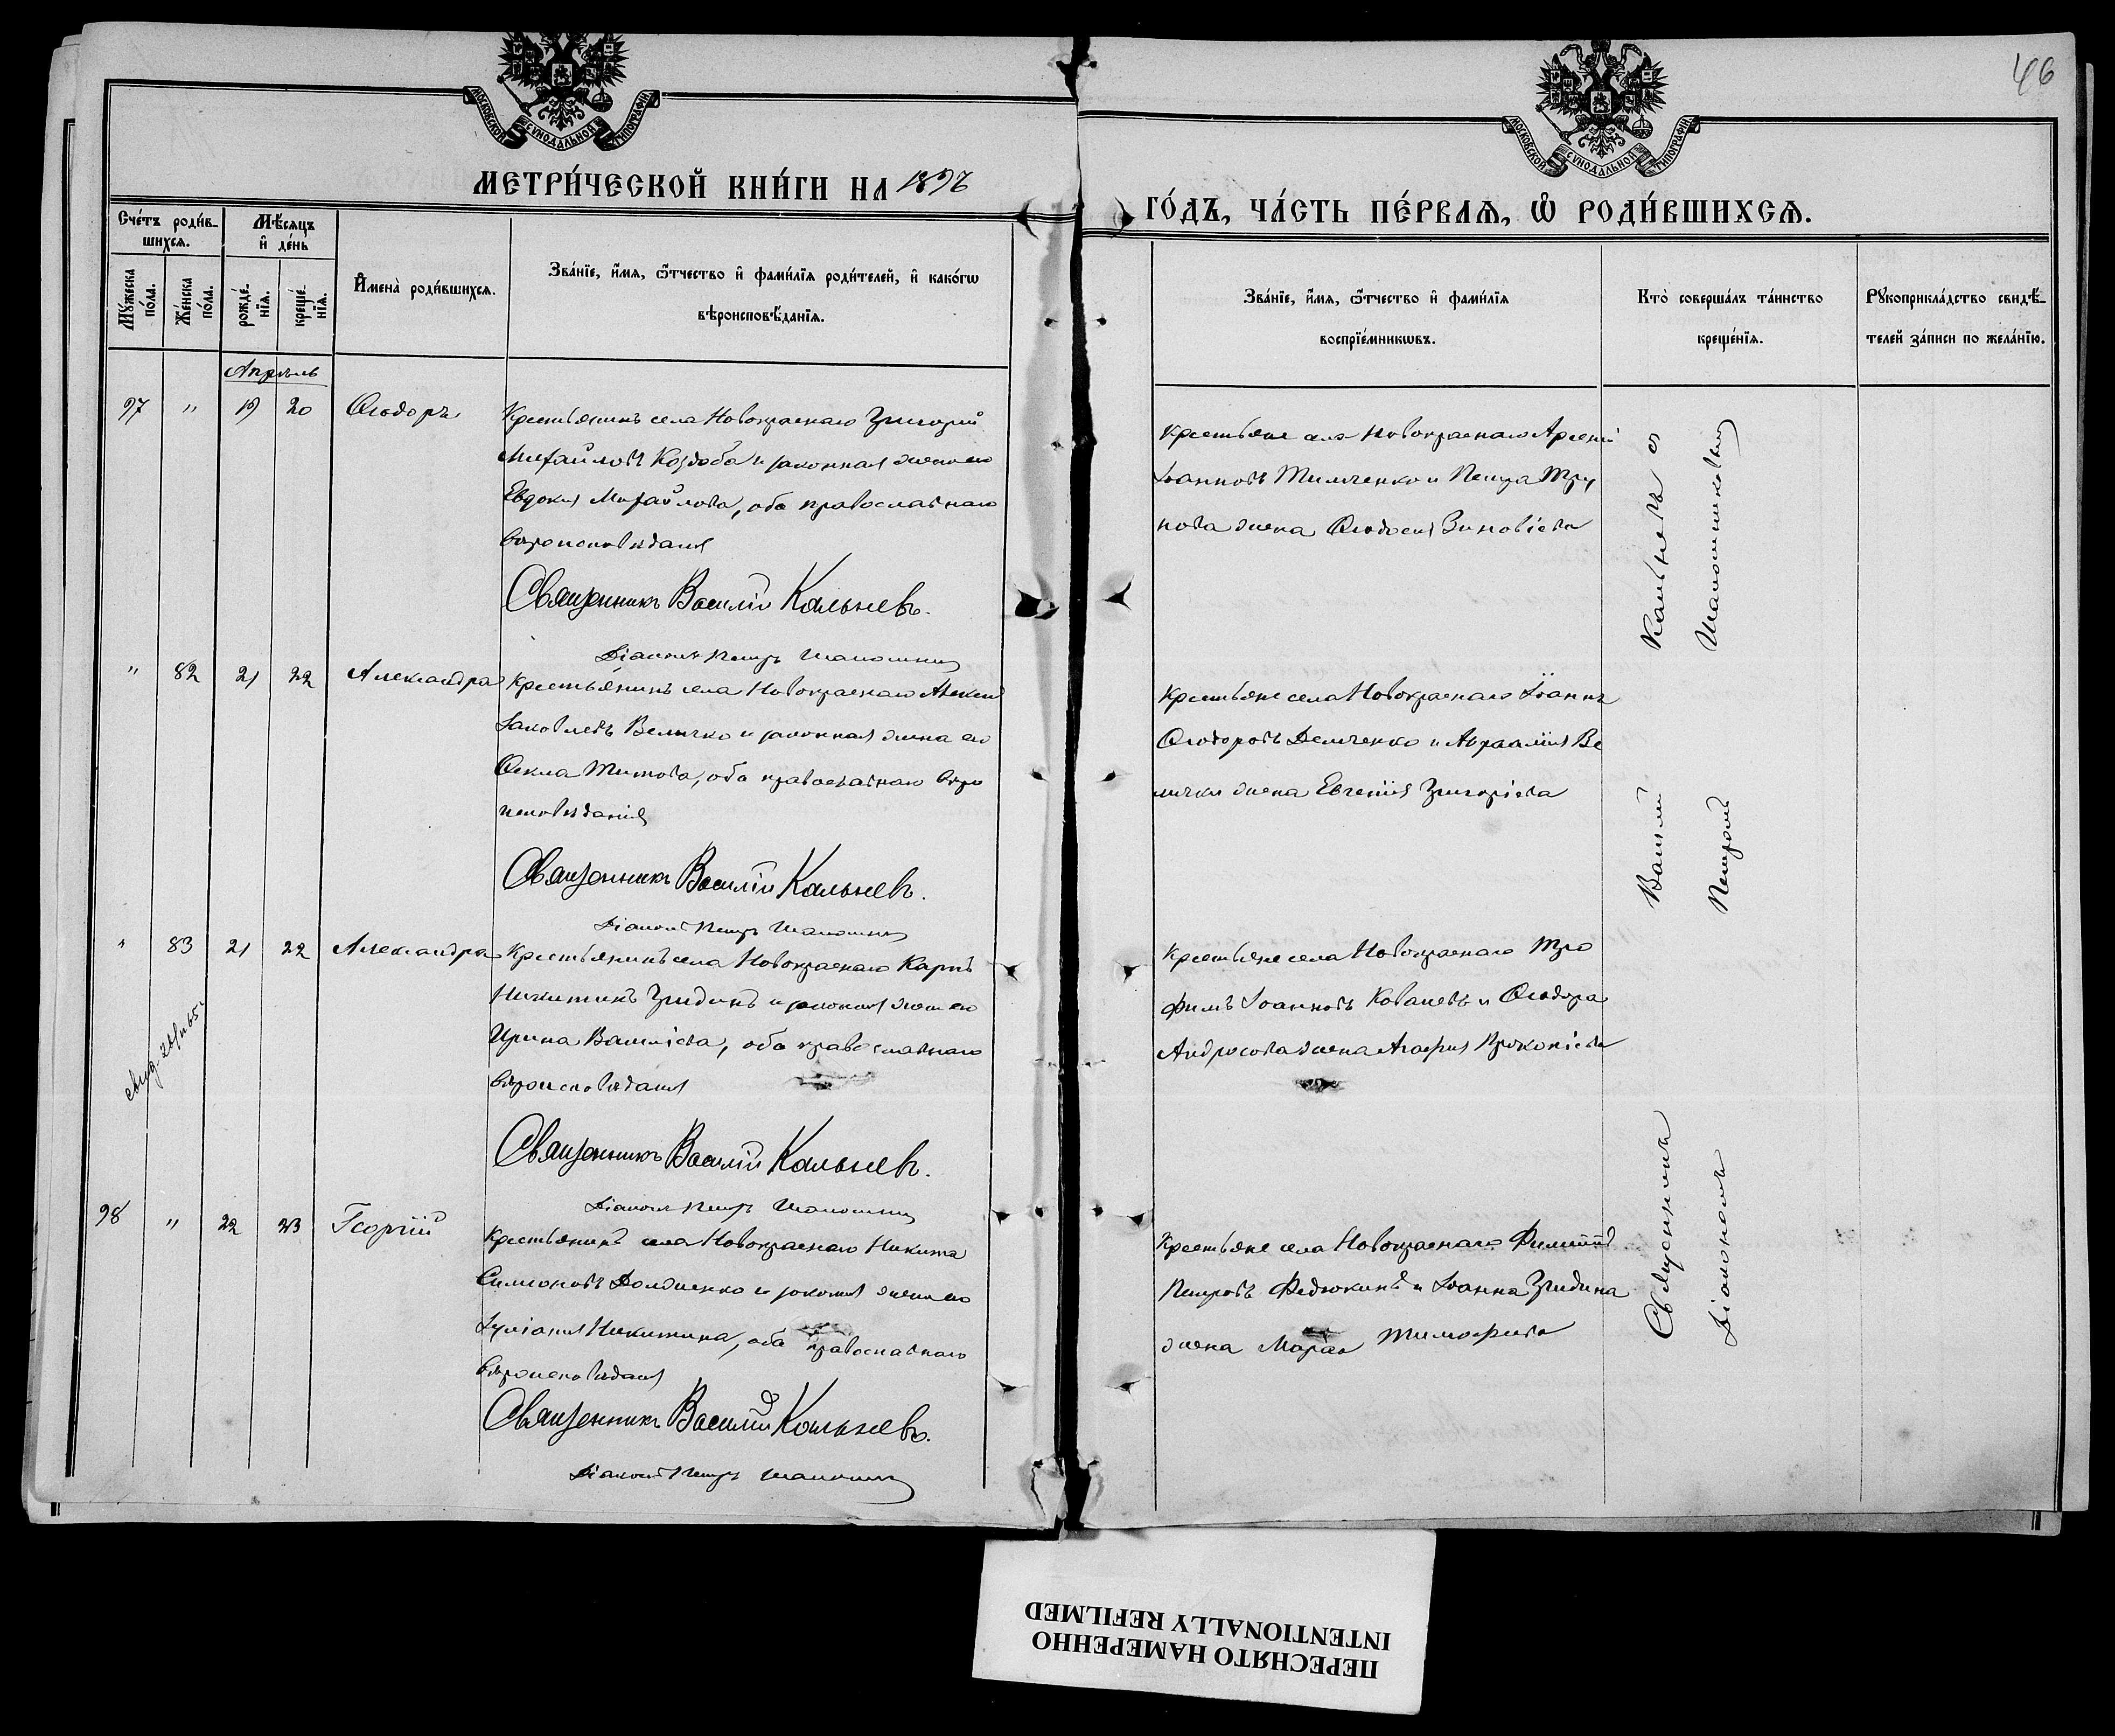 46
МОСКОВСКОЙ СУНОДАЛЬНОЙ ТИПОГРАФІИ
МОСКОВСКОЙ СУНОДАЛЬНОЙ ТИПОГРАФІИ
МЕТРИ́ЧЕСКОЙ КНИ́ГИ НА
ГО́ДЪ, ЧА́СТЬ ПЕ́РВАѦ, Ѡ҆ РОДИ́ВШИХСѦ.
Сче́тъ роди́в-
шихсѧ.
Мꙋ́жеска по́ла.
Же́нска по́ла.
Мѣ́сѧцъ
и҆ де́нь
рожде́-
нїѧ.
креще́-
нїѧ.
И҆мена̀ роди́вшихсѧ.
Зва́нїе, и҆́мѧ, ѻ҆́тчество и҆ фами́лїѧ роди́телей, и҆ како́гѡ
вѣроисповѣ́данїѧ.
Зва́нїе, и҆́мѧ, ѻ҆́тчество и҆ фами́лїѧ
воспрїе́мникѡвъ.
Кто̀ соверша́лъ та́инство
креще́нїѧ.
Рꙋкоприкла́дство свидѣ́-
телей за́писи по жела́нїю.
Апрѣль
97 " 19 20 Ѳеодоръ
Крестьянинъ села Новокраснаго Григорій
Михайловъ Коздоба и законная жена его
Евдокія Михайлова, оба православнаго
вѣроисповѣданія
Священникъ Василій Кальневъ.
Діаконъ Петръ
Крестьяне села Новокраснаго Арсеній
Іоанновъ Тимченко и Петра Тру
нова жена Ѳеодосія Зиновіева
" 82 21 22 Александра
Крестьянинъ села Новокраснаго Алексій
Іаковлевъ Величко и законная жена его
Ѳекла Титова, оба православнаго вѣро
исповѣданія
Священникъ Василій Кальневъ.
Діаконъ Петръ
Крестьяне села Новокраснаго Іоаннъ
Ѳеодоровъ Демченко и Авраамія Ве
личко жена Евгенія Григоріева
" 83 21 22 Александра
Крестьянинъ села Новокраснаго Карпъ
Никитинъ Гридинъ и законная жена его
Ирина Василіева, оба православнаго
вѣроисповѣданія
Священникъ Василій Кальневъ.
Діаконъ Петръ
Крестьяне села Новокраснаго Тро
фимъ Іоанновъ Ковалевъ и Ѳеодора
Андросова жена Агафія Прокопіева
98 " 22 23 Георгій
Крестьянинъ села Новокраснаго Никита
Симеоновъ Долженко и законная жена его
Іуліанія Никитина, оба православнаго
вѣроисповѣданія
Священникъ Василій Кальневъ.
Діаконъ Петръ
Крестьяне села Новокраснаго Филиппъ
Петровъ Федюкинъ и Іоанна Гридина
жена Марѳа Тимофеева
Священникъ Василій Кальневъ съ
Діакономъ Петромъ
ПЕРЕСНЯТО НАМЕРЕННО
INTENTIONALLY REFILMED